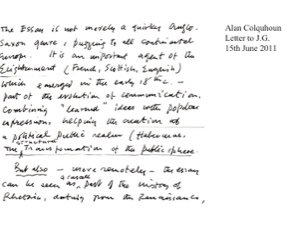 The Essay is not merely a quirky Anglo-
Saxon genre, puzzling to all continental
Europe. It is an important agent of the
Enlightenment (French, Scottish, English)
which emerged in the early 18th c. as
part of the evolution of communication.
Combining "learned" ideas with popular
expression, helping the creation of
a political public realm (Habermas,
The structural Transformation of the public sphere.
But also – more remotely – the essay
can be seen as part of the history of
Rhetoric, dating from the Renaissance,
Alan Colquhoun
Letter to J.G.
15th June 2011